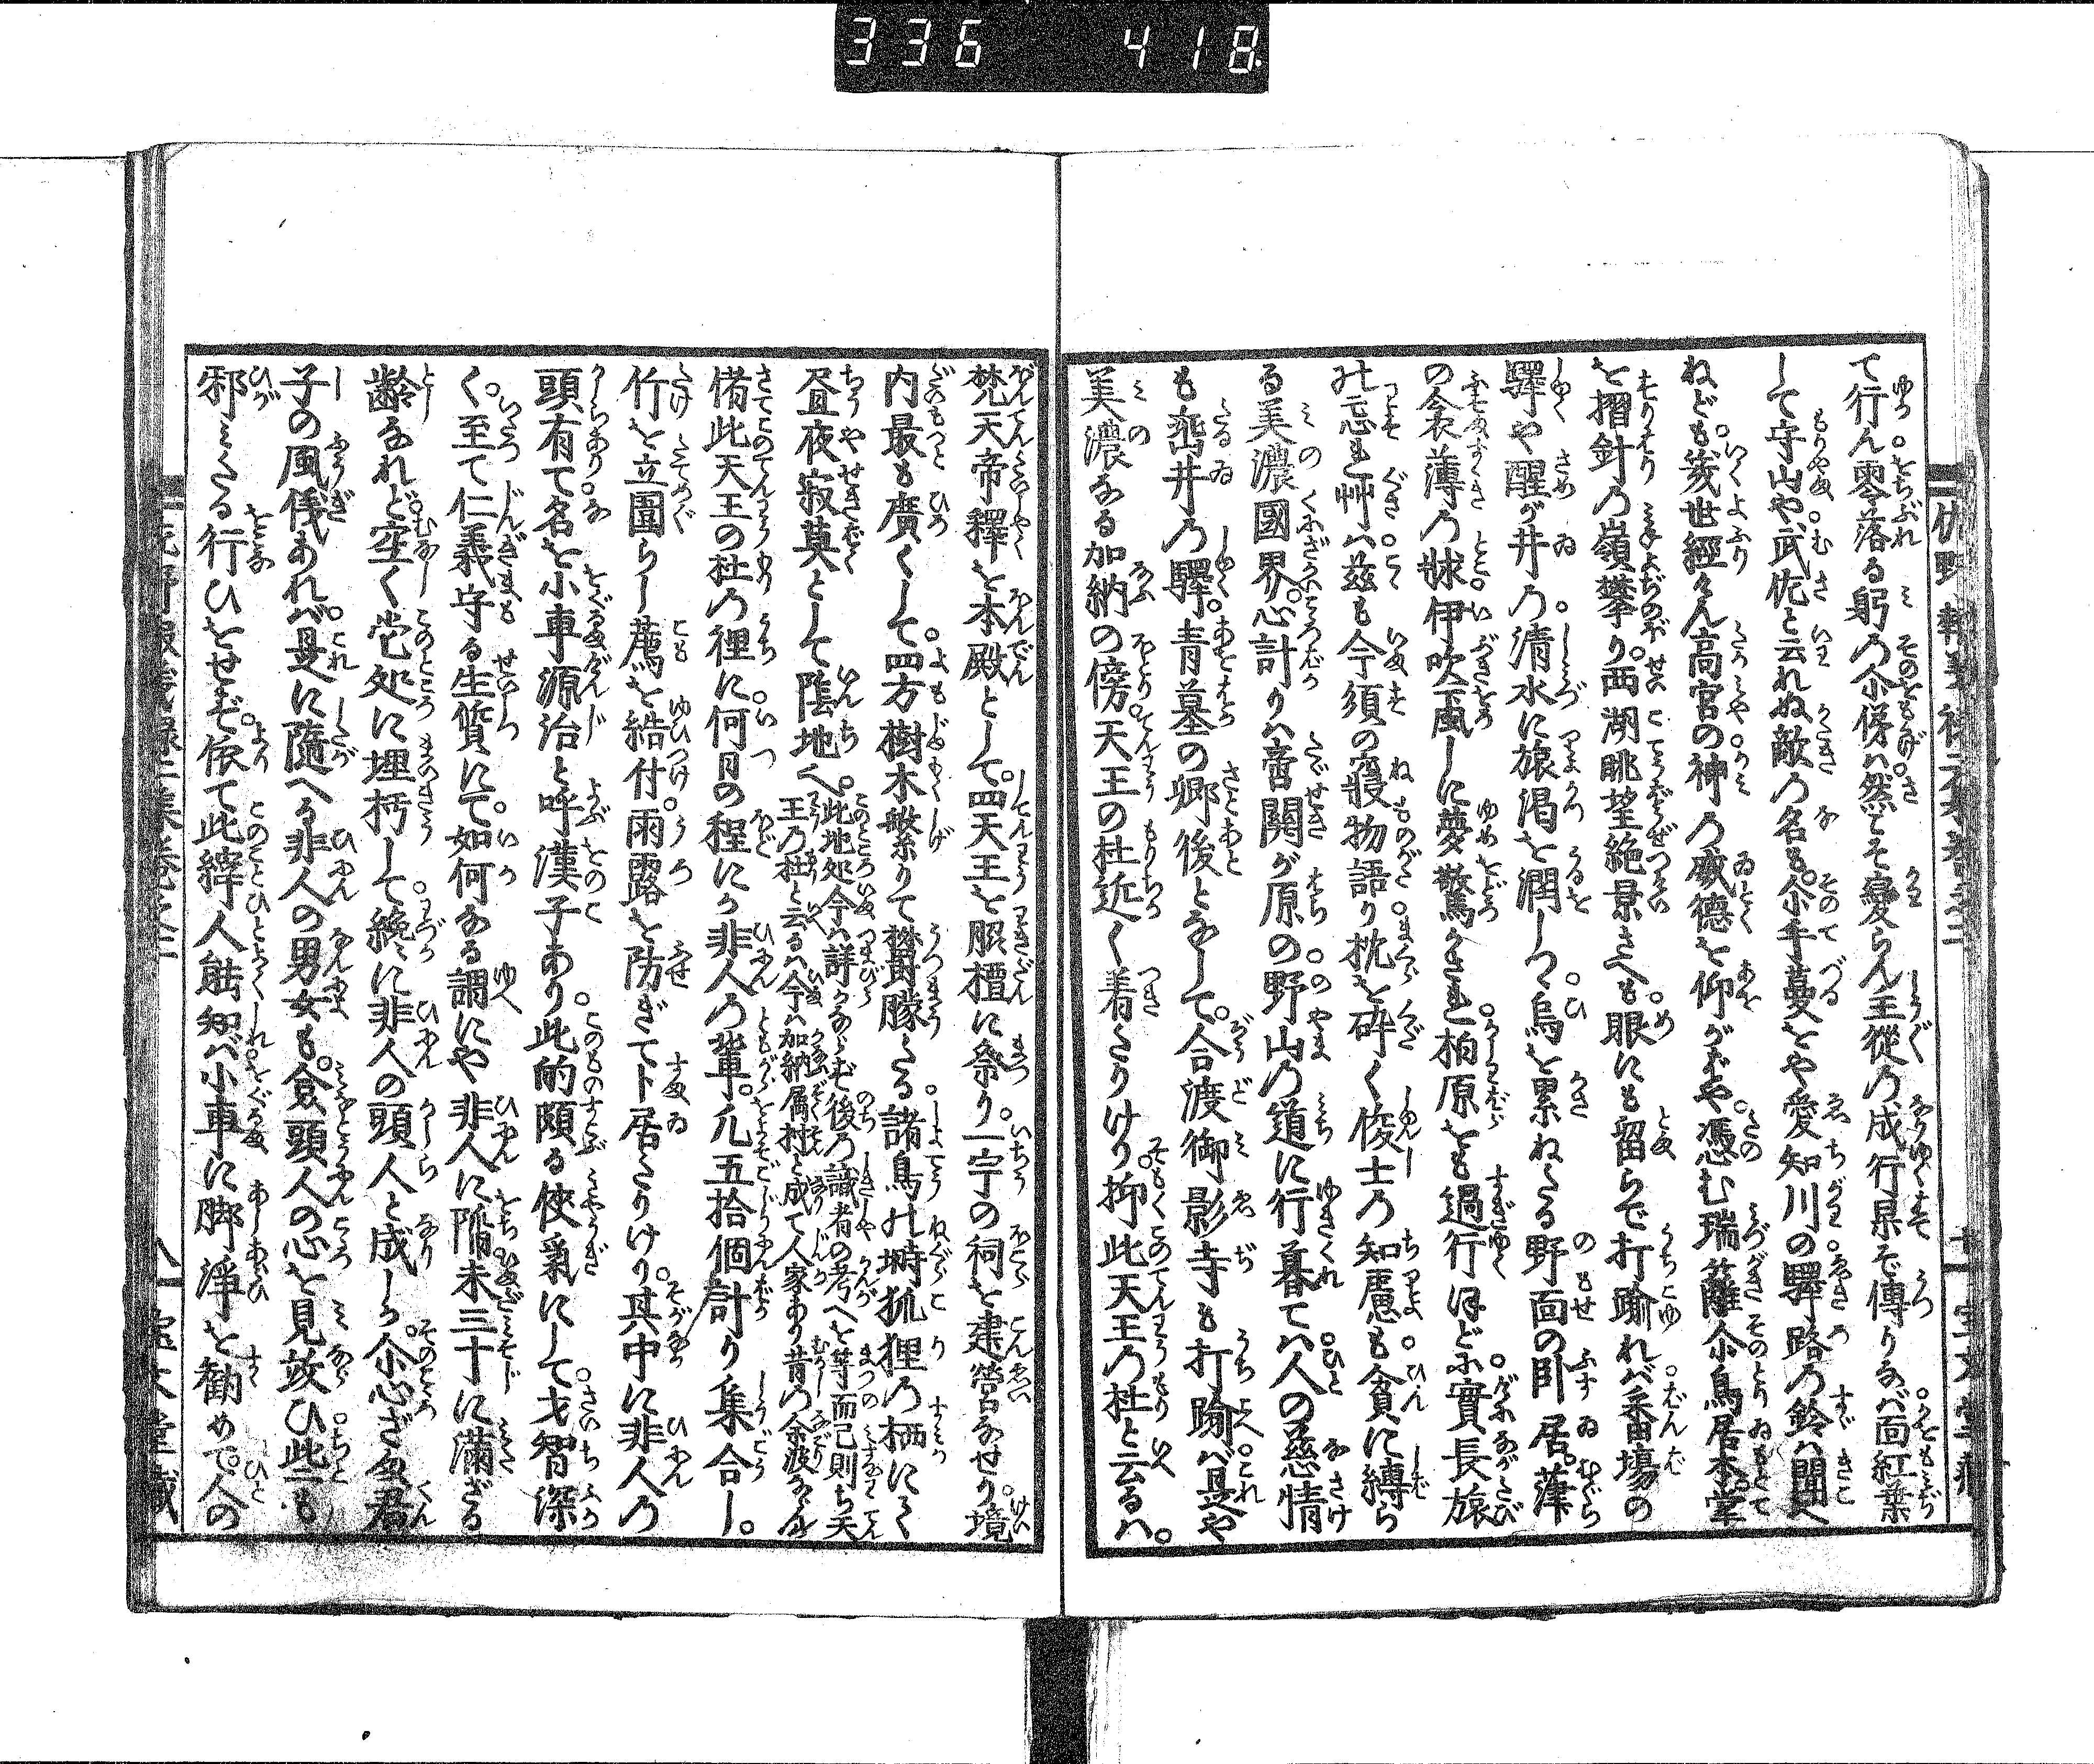 336 418
て行ん零落る躬の尒俤ハ然こそ變らん主從の成行果ぞ傳りなバ面紅葉
して守山や武佐と云れぬ敵の名も尒手蔓をや愛知川の驛路の鈴ハ聞へ
ねども幾世經けん高宮の神の威徳を仰がばや憑む瑞籬尒鳥居本掌
を摺針の嶺攀り西湖眺望絶景さへも眼にも留らで打踰れバ番場の
驛や醒が井の清水に旅渇を潤しつ烏を累ねたる野面の臥居葎
の衾薄の牀伊吹颪しに夢驚かされ柏原をも過行ほどに實長旅
の忘れ艸ハ茲も今須の寢物語り枕を砕く俊士の知慮も貪に縛ら
る美濃國界心計りハ啻關が原の野山の道に行暮てハ人の慈情
も垂井の驛青墓の郷後となして合渡御影寺も打踰バ是や
美濃なる加納の傍天王の杜近く着たりけり抑此天王の杜と云るハ
梵天帝釋を本殿として四天王を照檀に祭り一宇の祠を建營なせり境
内最も廣くして四方樹木繁りて欝朦たる諸鳥の塒狐狸の栖にて
昼夜寂莫として陰地く此地処今ハ詳かならず後の識者の考へを等而已則ち天
王の杜と云るハ今ハ加納属村と成て人家あり昔の余波ならん
偖此天王の杜の裡に何日の程にか非人の輩凡五拾個計り集合し
竹を立圍らし薦を結付雨露を防ぎて卜居たりけり其中に非人の
頭有て名を小車源治と呼漢子あり此的頗る侠氣にして才智深
く至て仁義守る生質にて如何なる謂にや非人に陥未三十に滿ざる
齢なれど空く此処に埋朽して纔に非人の頭人と成しか尒心ざま君
子の風儀あれバ是に隨へる非人の男女も食頭人の心を見效ひ些も
邪ミたる行ひをせず依て此縡人能知バ小車に脚淨を勧めて人の